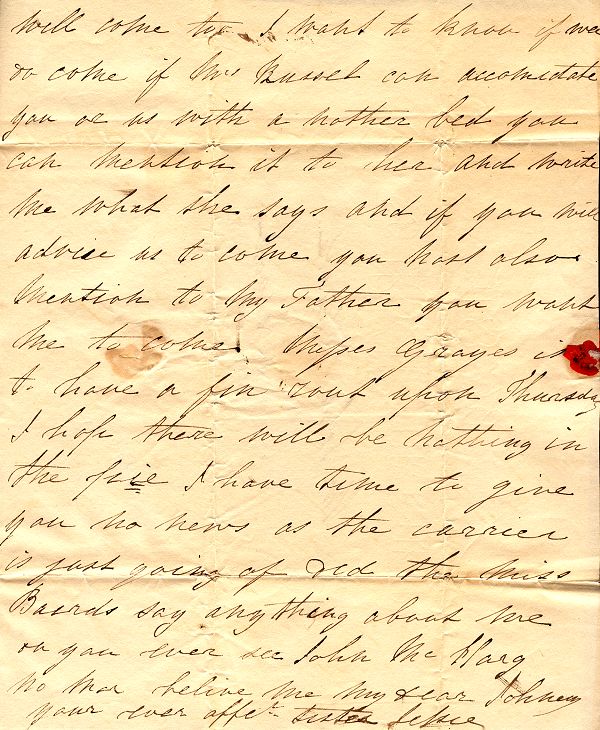 will come too I want to know if wee
do come if Mrs Russel can acomidate
you or us with a nother bed you
can mention it to her and write
me what she says and if you will
advice us to come you must also
mention to my Father you want
me to come Misses Grayes is
to have a fin rout upon Thursday
I hop there will be nothing in
the I have time to give
you no news as the carrier
is just going of did the Miss
Bairds say anything about me
do you ever see John Mc Harg
no mor belive me my dear Johney
your ever afft sister Jessie